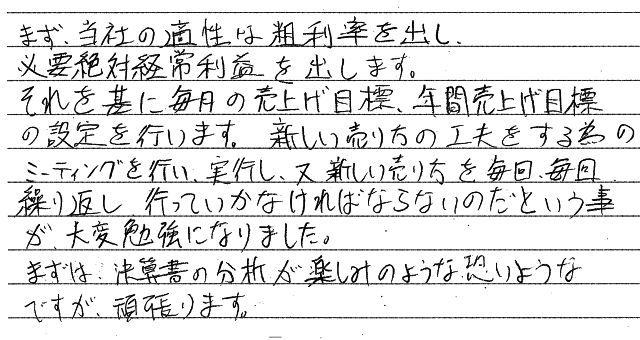 まず、当社の適性は粗利率を出し、
必要絶対経常利益を出します。
それを基に毎月の売上げ目標、年間売上げ目標
の設定を行います。新しい売り方の工夫をする為の
ミーティングを行い、実行し、又新しい売り方を毎回、毎回
繰り返し行っていかなければならないのだという事
が、大変勉強になりました。
まずは、決算書の分析が楽しみのような恐いような
ですが、頑張ります。